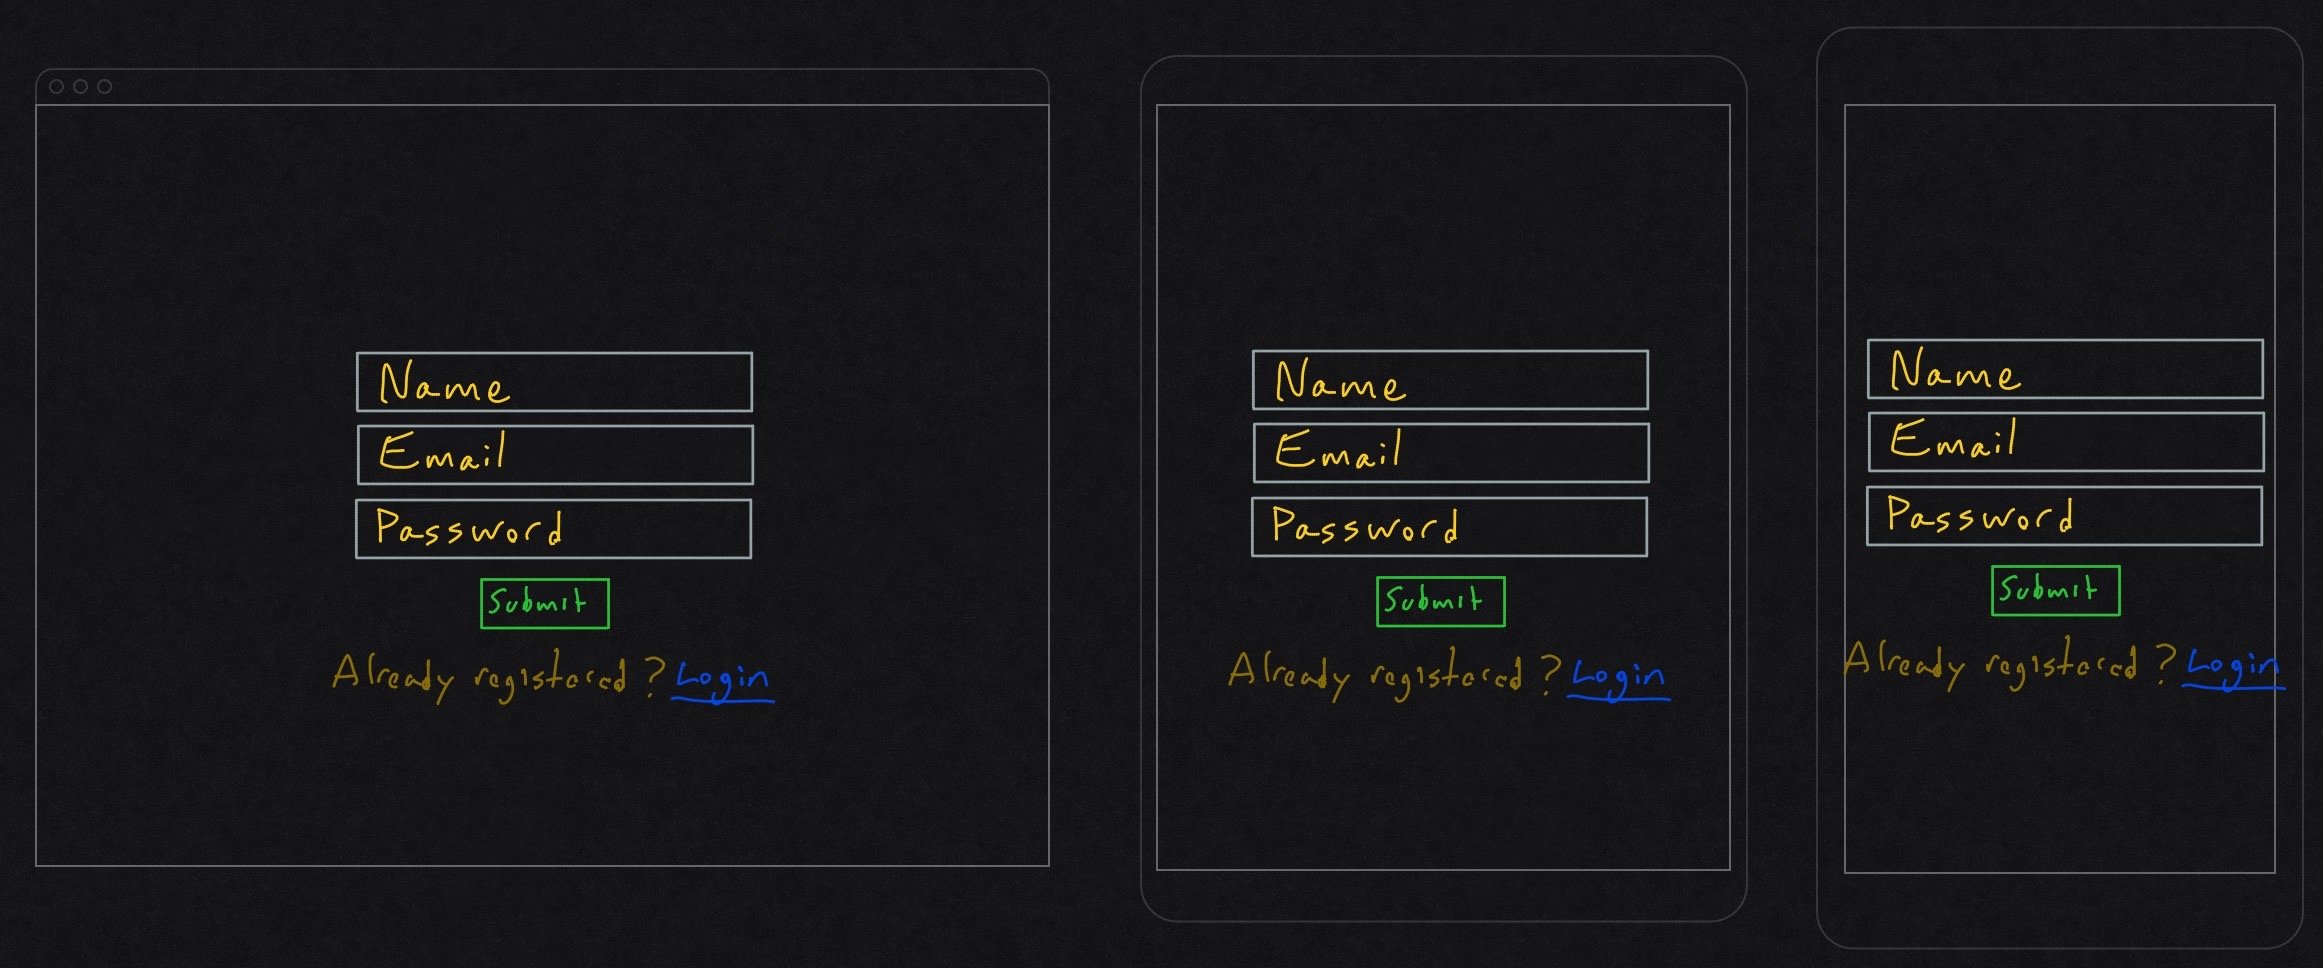 Name
Email
Password
Submit
Already registered? Login
Name
Email
Password
Submit
Already registered? Login
Name
Email
Password
Submit
Already registered? Login